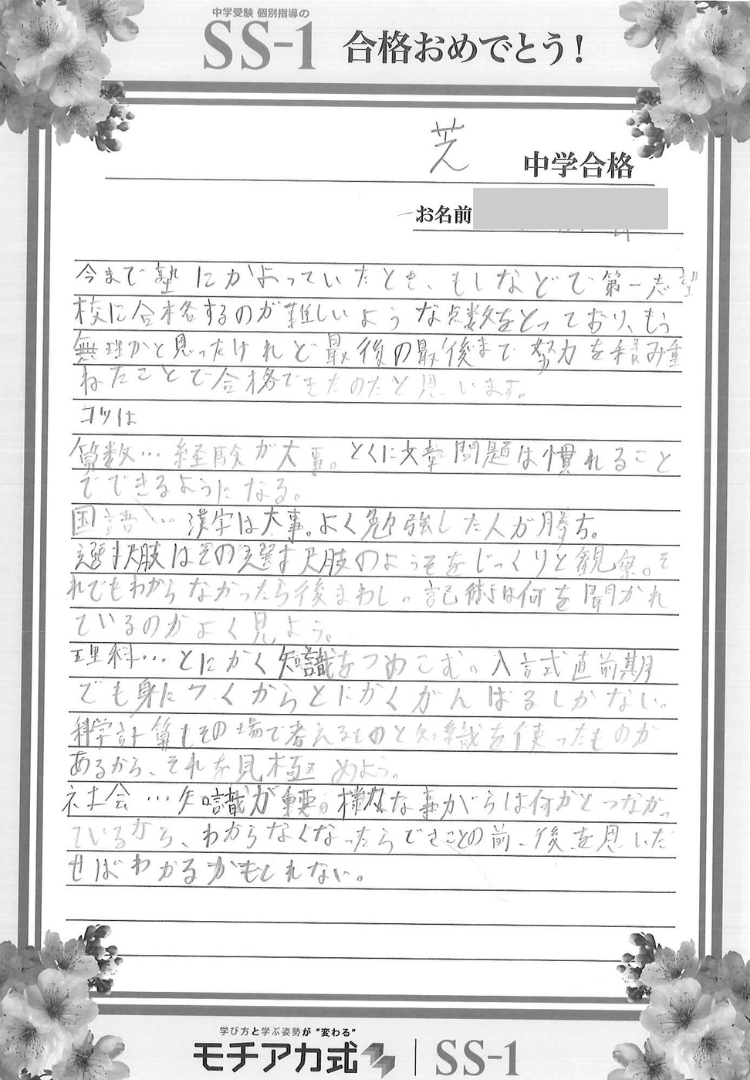 中学受験 個別指導の
SS-1 合格おめでとう!
芝 中学合格
お名前
今まで塾にかよっていたとき、もしなどで第一志望
校に合格するのが難しいような点数をとっており、もう
無理かと思ったけれど最後の最後まで努力を積み重
ねたことで合格できたのだと思います。
コツは
算数…経験が大事。とくに文章問題は慣れること
でできるようになる。
国語…漢字は大事。よく勉強した人が勝ち。
選択肢はその選択肢のようそをじっくりと観察。そ
れでもわからなかったら後まわし。記術は何を聞かれ
ているのかよく見よう。
理科…とにかく知識をつめこむ。入試直前期
でも身につくからとにかくがんばるしかない。
科学計算もその場で考えるものと知識を使ったものが
あるから、それを見極めよう。
社会…知識が重要。様々な事がらは何かとつながっ
ているから、わからなくなったらできごとの前、後を思いだ
せばわかるかもしれない。
学び方と学ぶ姿勢が"変わる"
モチアカ式 SS-1